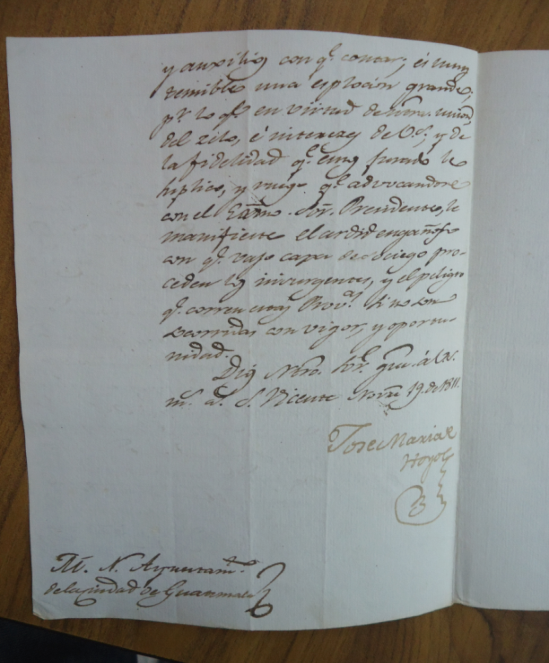 y auxilios con q.e contar; es muy
temible una esplocion grande,
p.r lo q.e en virtud de
del zelo, é interezes de V.S; y de
la fidelidad q.e le
suplico, y ruego q.e advocandose
con el Exmo. Sor. Precidente, le
manifieste el ardid engañoso
con q.e vajo capa de sociego pro-
ceden los insurgentes, y el peligro
q.e corren estas Prov.as si no son
socorridas con vigor, y oportu-
nidad.
Dios Ntro. Sor. gue. á V.S.
m.s a.s S. Vicente Novre. 19. de 1811.
Jose Maria
Hoyos
M. N. Ayuntam.to
de la ciudad de Guatemala